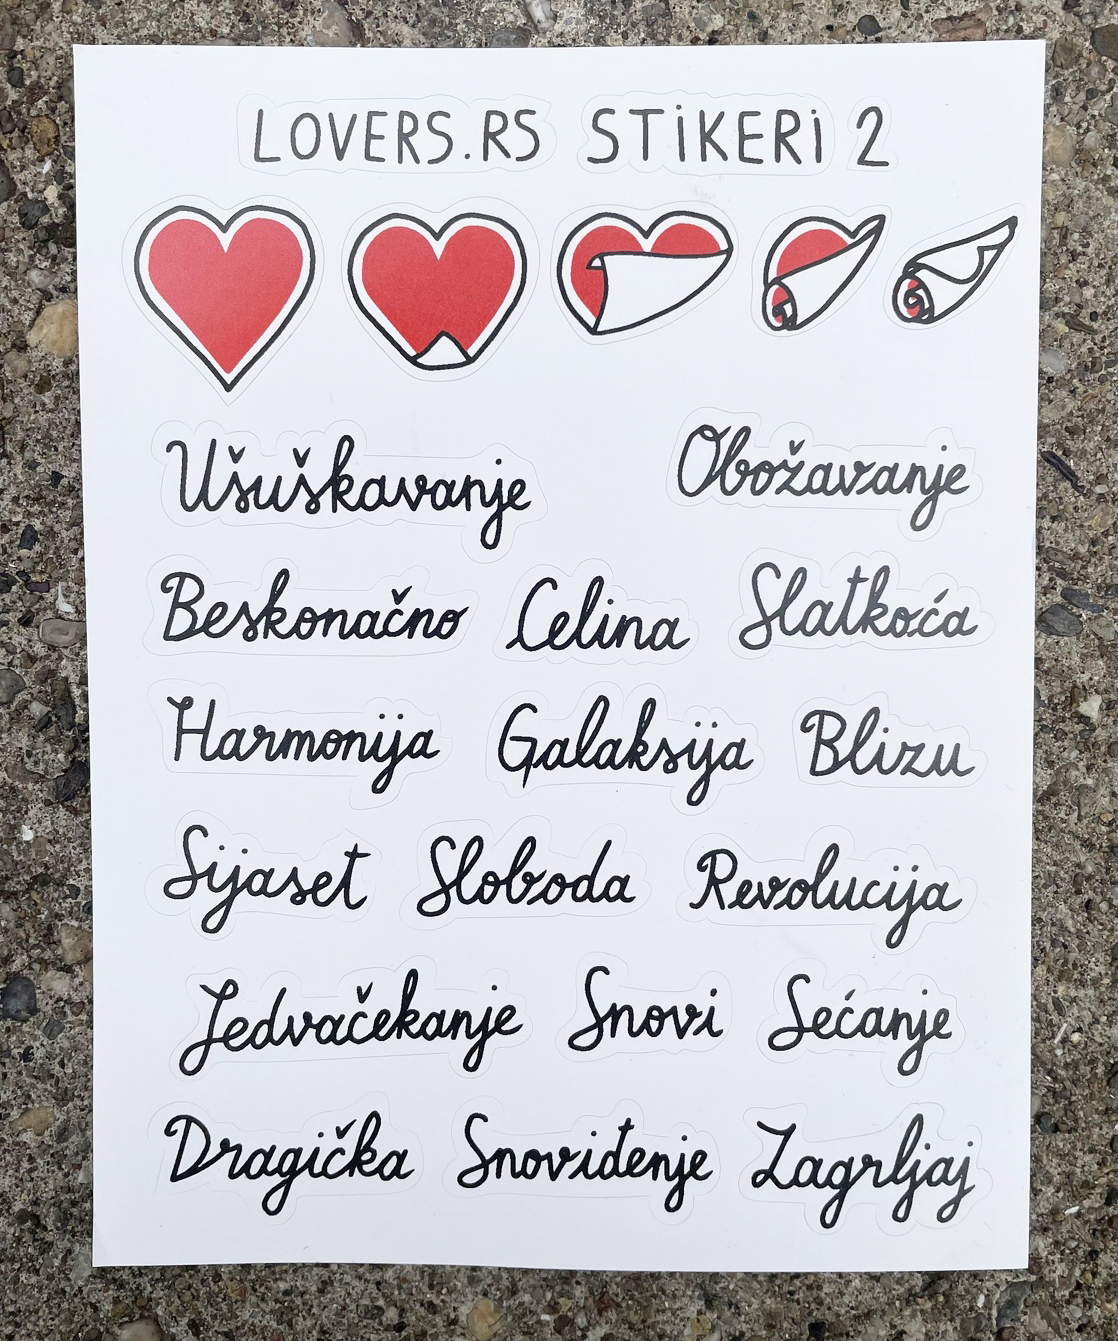 LOVERS.RS STiKERi 2
Ušuškavanje Obožavanje
Beskonačno Celina Slatkoća
Harmonija Galaksija Blizu
Sijaset Sloboda Revolucija
Jedvačekanje Snovi Sećanje
Dragička Snoviđenje Zagrljaj